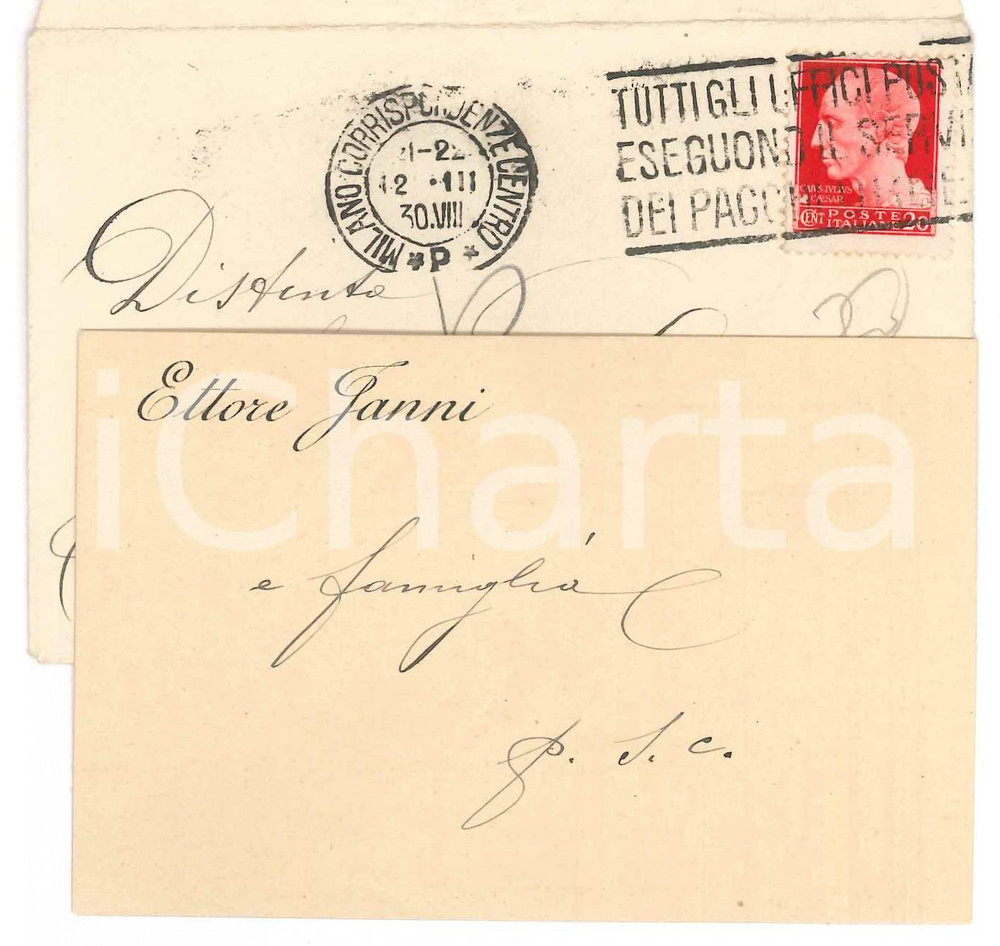 MILANO CORRISPONDENZE CENTRO
21-22
12 · III
30.VIII
* P *
TUTTI GLI UFFICI POSTA
ESEGUONO IL SERVI
DEI PAG
CAIVS IVLIVS
CAESAR
CENT POSTE 20
ITALIANE
Distinta
Ettore Janni
iCharta
e famiglia
p. s. c.